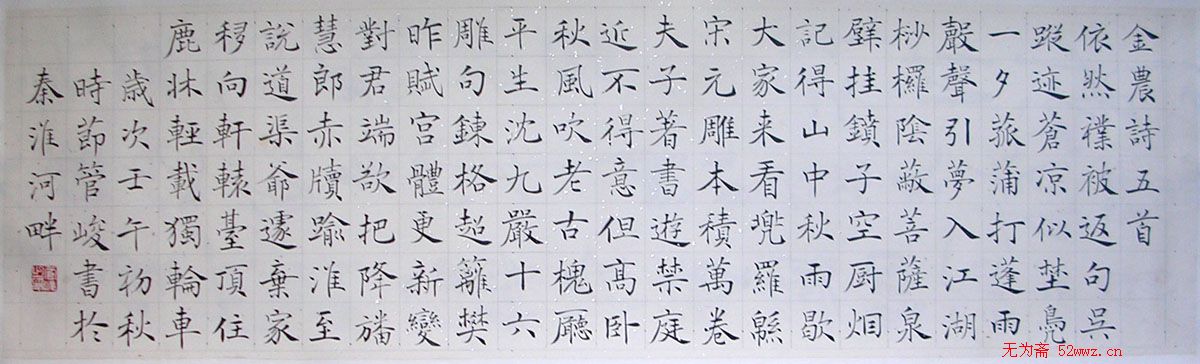 金農詩五首
依然襆被返句吳
蹤迹蒼凉似埜鳧
一夕菰蒲打蓬雨
聲引夢入江湖
桫欏陰蔽菩薩泉
壁挂子空厨烟
記得山中秋雨歇
大家来看兜羅緜
宋元雕本積萬卷
夫子著書遊禁庭
近不得意但高卧
秋風吹老古槐廳
平生沈九嚴十六
雕句鍊格超籬樊
昨賦宮體更新變
對君端欲把降旛
慧郎赤牘踰淮至
說道渠爺遽棄家
移向軒轅臺頂住
鹿牀輕載獨輪車
歲次壬午初秋
時節管峻書於
秦淮河畔
无为斋 52wwz.cn